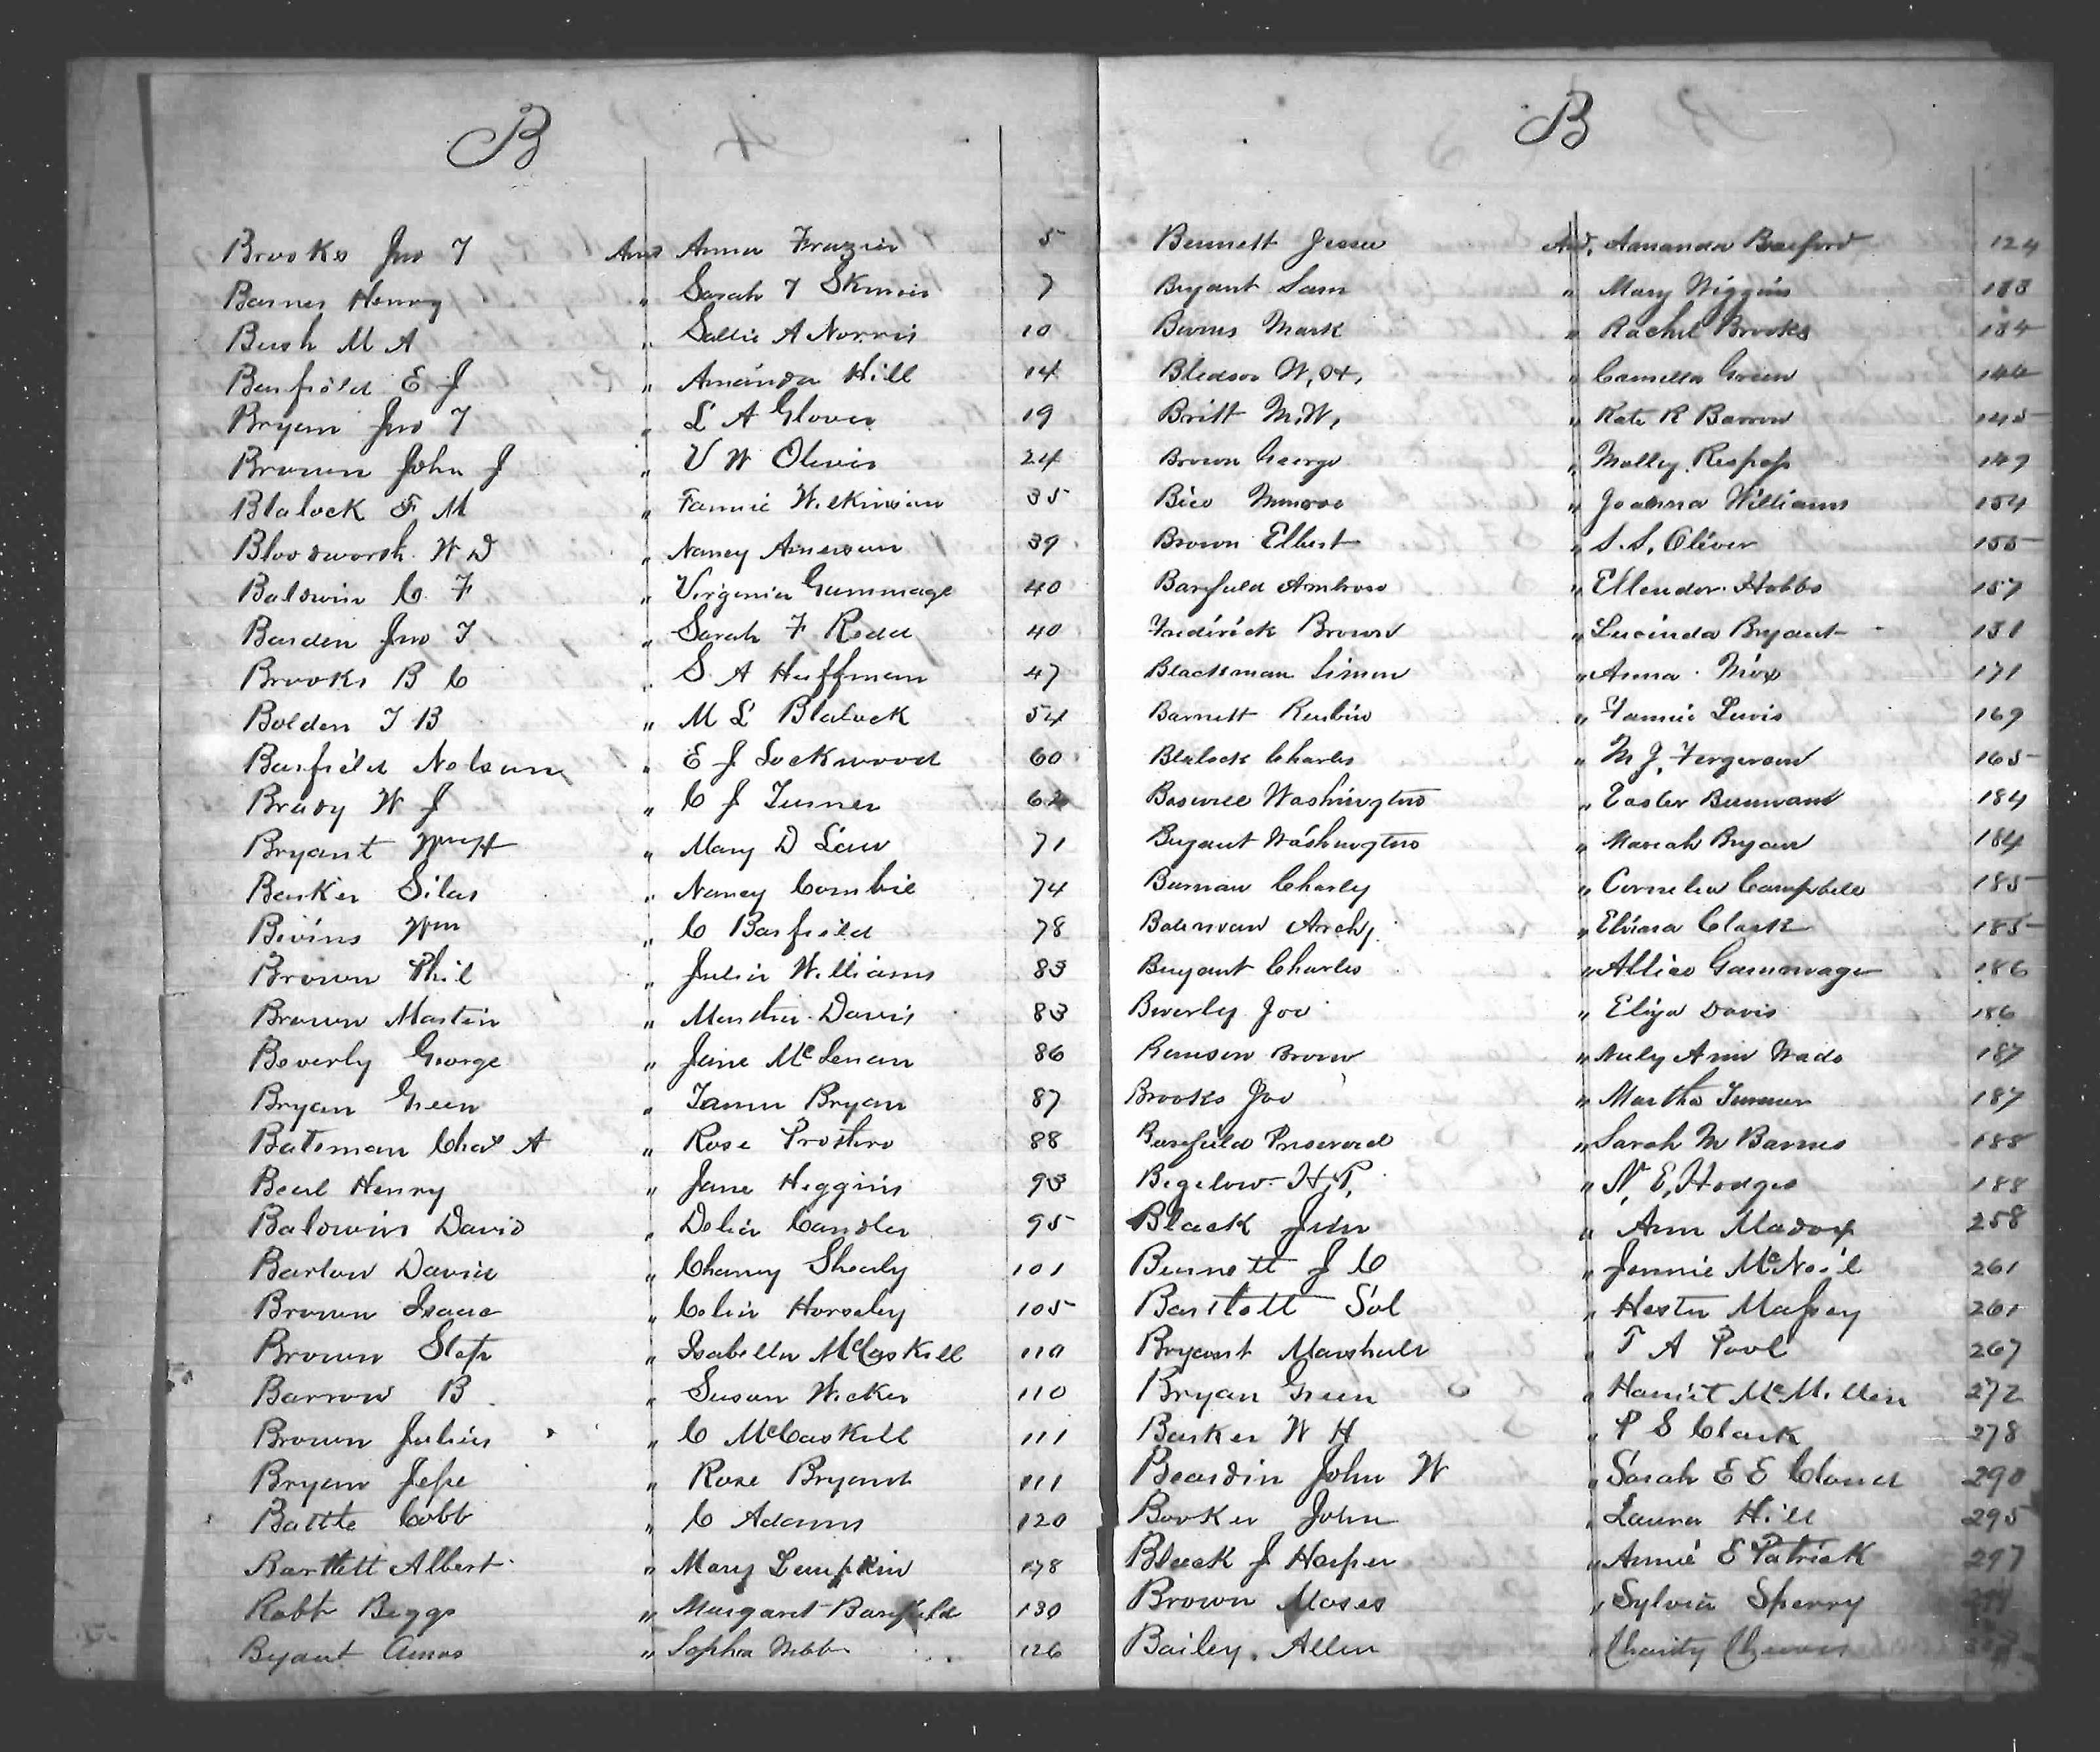 B
Brooks Jno T And Anna Frazier 5
Barnes Henry " Sarah T Skinner 7
Bush M A " Sallie A Norris 10
Barfield E J " Amanda Hill 14
Bryan Jno T " L A Glover 19
Brown John J " V W Oliver 24
Blalock F M " Fannie Wilkinson 35
Bloodworth W D " Nancy Amerson 39
Baldwin C. F " Virginia Gummage 40
Barden Jno T " Sarah F Redd 40
Brooks B C " S. A Huffman 47
Bolden T B " M L Blalock 54
Barfield Nelson " E J Lockwood 60
Brady W J " C J Turner
Bryant Wm H " Mary D Law 71
Barker Silas " Nancy Combie 74
Bivins Wm " C Barfield 78
Brown Phil " Julia Williams 83
Brown Martin " Martha Davis 83
Beverly George " Jane McLenan 86
Bryan Green " Bryan 87
Bateman Chas A " Rose Prothro 88
Beal Henry " Jane Higgins 93
Baldwin David " Delia Candler 95
Barlow David " Chaney Shealy 101
Brown Isaac " Celia Horseley 105
Brown " Isabella McCaskill 110
Barrow B. " Susan Wicker 110
Brown Julius " C McCaskill 111
Bryan Jesse " Rose Bryant 111
Battle Cobb " C Adams 120
Bartlett Albert " Mary Lumpkin 178
Robt Beggs " Margaret Barefield 130
Byant Amos " Sophia Webb 126
B
Bennett Jesse And. Amanda 124
Bryant Sam " Mary Wiggins
Mark " Rachel Brooks
Bledsoe W, H, " Camella Green 144
Britt M. W, " Kate R Barron 145
Brown George " Molley 149
Monroe " Joanna Williams 154
Brown Elbert " S. S. Oliver 155
Barefield Ambrose " Ellender Hobbs 157
Frederick Brown " Lucinda Bryant 131
Blackman Simon " Anna Nix 171
Barnett Reubin " Fannie Lewis 169
Blalock Charles " M J. Fergerson 165
Boswell Washington " Easter 184
Bryant Washington " Mariah Bryan 184
Charly " Cornelia Campbell 185
Archy. " Elvira Clark 185
Bryant Charles " Allice Gammage 186
Beverly Joe " Eliza Davis 186
Ranson Brown " Ann Wade 187
Brooks Joe " Martha Turner 187
Barefield " Sarah M Barnes 188
Bigelow H, P, " N, E, Hodges 188
Black " Ann Madox 258
Bennett J C " Jennie McNeil 261
Bartlett Sol " Hester Massey 261
Bryant Marshall " T A Pool 267
Bryan Green " Harriet McMillen 272
Barker W H " P S Clark 278
Beardin John W " Sarah E E Cloud 290
Booker John " Laura Hill 295
Black J Harper " Annie E Patrick 297
Brown Moses " Sylvia Sperry
Bailey. Allen " Charity